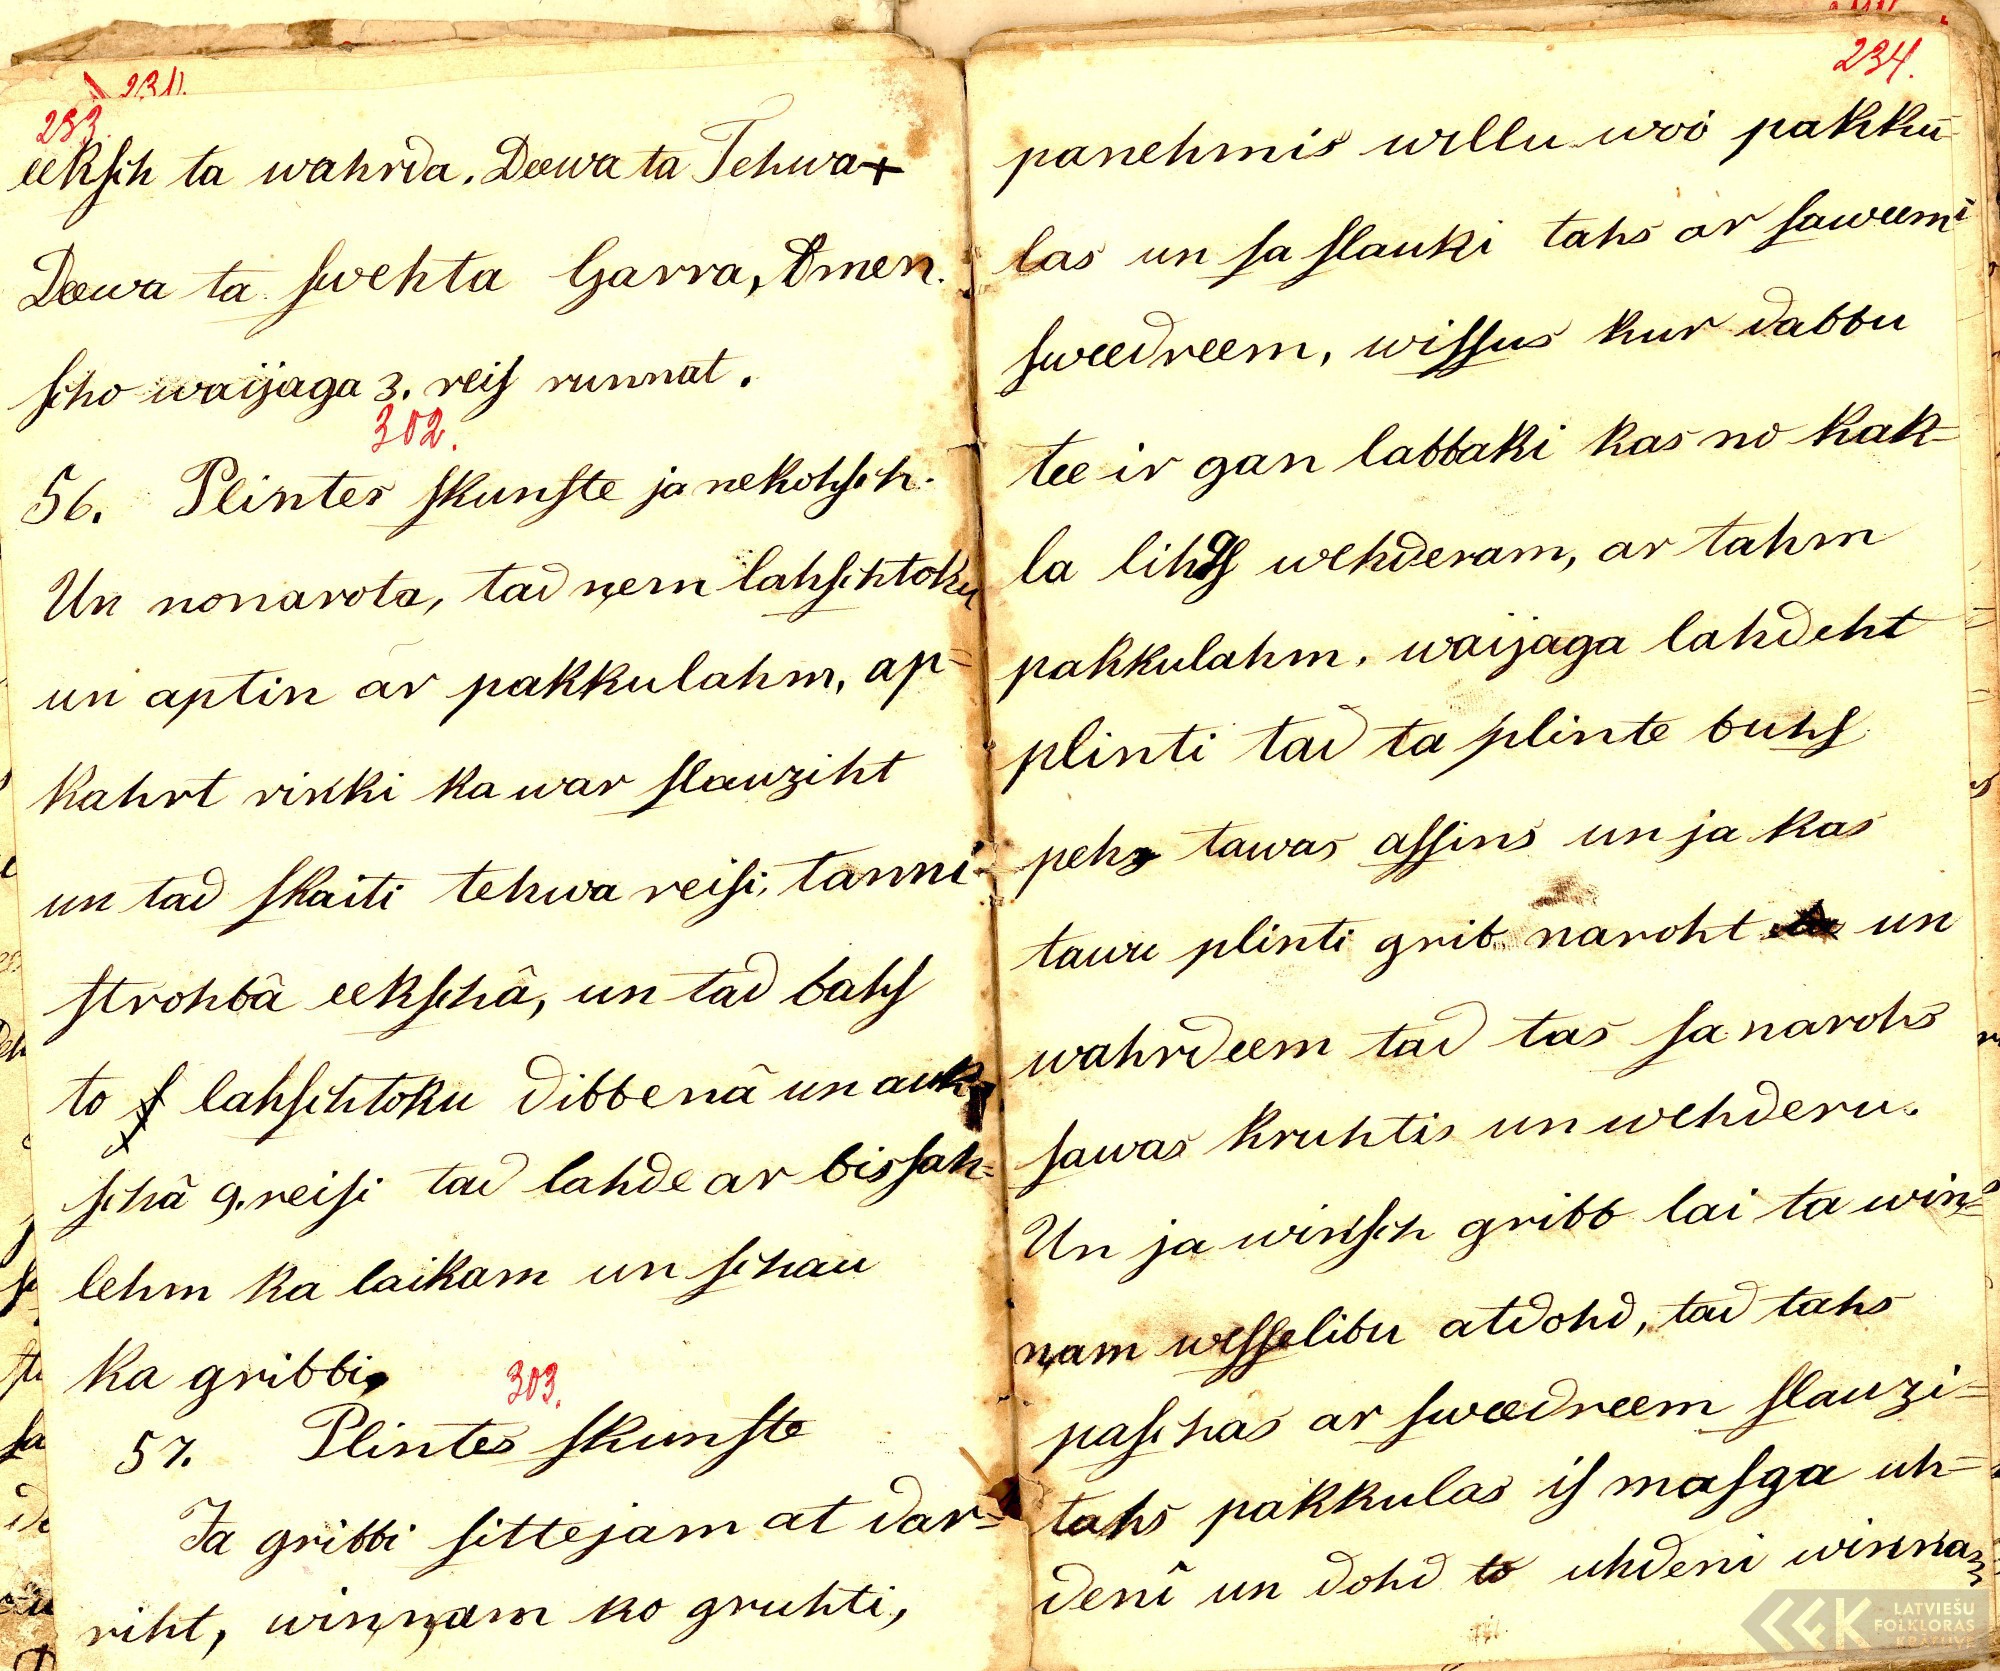 231.
233.
eekſch ta wahrda. Deewa ta Tehwa +
Deewa ta ſwehta Garra, Amen.
ſcho waijaga 3. reiſ runnat.
302.
56. Plintes ſkunſte ja nekohſch.
Un nonarota, tad ņem lahſchtoku
un aptin ar pakkulahm, ap=
kahrt rinki ka war ſlauziht
un tad ſkaiti tehwa reiſi, tanni
ſtrohbâ eekſchâ, un tad bahſ
to lahſchtoku dibbenâ un auk
ſchâ 9. reiſi tad lahde ar bisſah=
lehm ka laikam un ſchau
ka gribbi.
303.
57. Plintes ſkunſte
Ja gribbi ſittejam at dar=
riht, winņam ko gruhti,
234.
panehmis willu woi pakku=
las un ſa ſlauki tahs ar ſaweem
ſweedreem, wiſſus kur dabbu
tee ir gan labbaki kas no kak=
la lihdſ wehderam, ar tahm
pakkulahm, waijaga lahdeht
plinti tad ta plinte buhſ
pehz tawas aſſins un ja kas
tawu plinti grib naroht un
wahrdeem tad tas ſa narohs
ſawas kruhtis un wehderu.
Un ja winſch gribb lai ta win=
ņam weſſelibu atdohd, tad tahs
paſchas ar ſweedreem ſlauzi=
tahs pakkulas iſ maſga uh=
denî un dohd to uhdeni winnam
LATVIEŠU
FOLKLORAS
KRĀTUVE